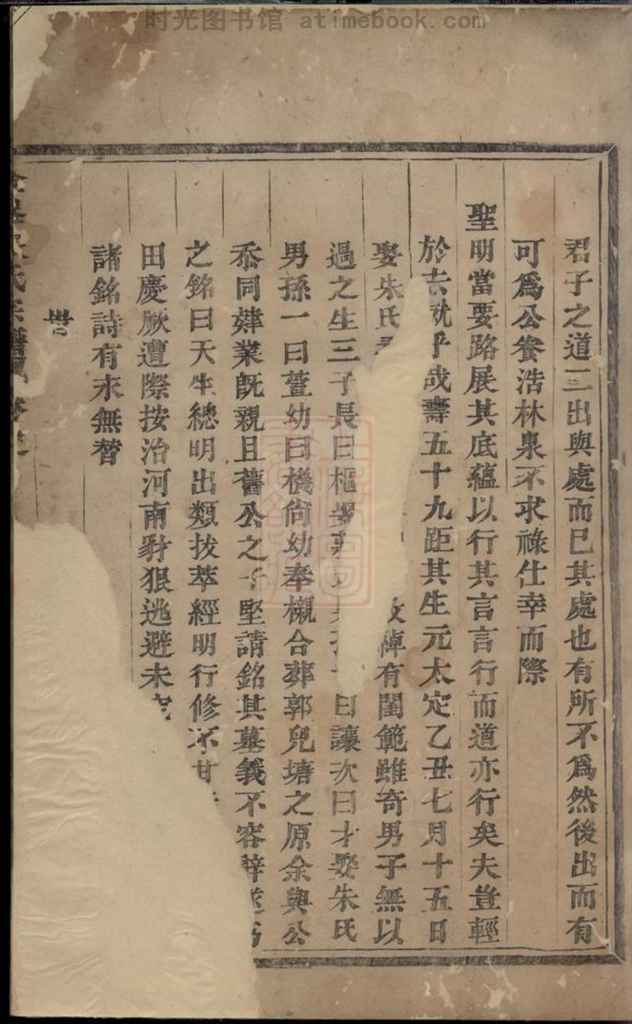 时光图书馆 atimebook.com
君子之道二出與處而已其處也有所不爲然後出而有
可爲公養浩林泉不求祿仕幸而際
聖明當要路展其底蘊以行其言言行而道亦行矣夫豈輕
於去就乎歲壽五十九距其生元太定乙丑七月十五日
娶朱氏 有閨範雖奇男子無以
過之生三子長曰樞 曰讓次曰才娶朱氏
男孫一曰萱幼曰機尙幼奉櫬合葬郭兒塘之原余與公
忝同嫀業旣親且舊公之子堅請銘其墓義不容辭遂爲
之銘曰天生總明出類拔萃經明行修不甘
田慶厥遭際按治河南豺狠逃避未
諸銘詩有永無替
氏宗譜